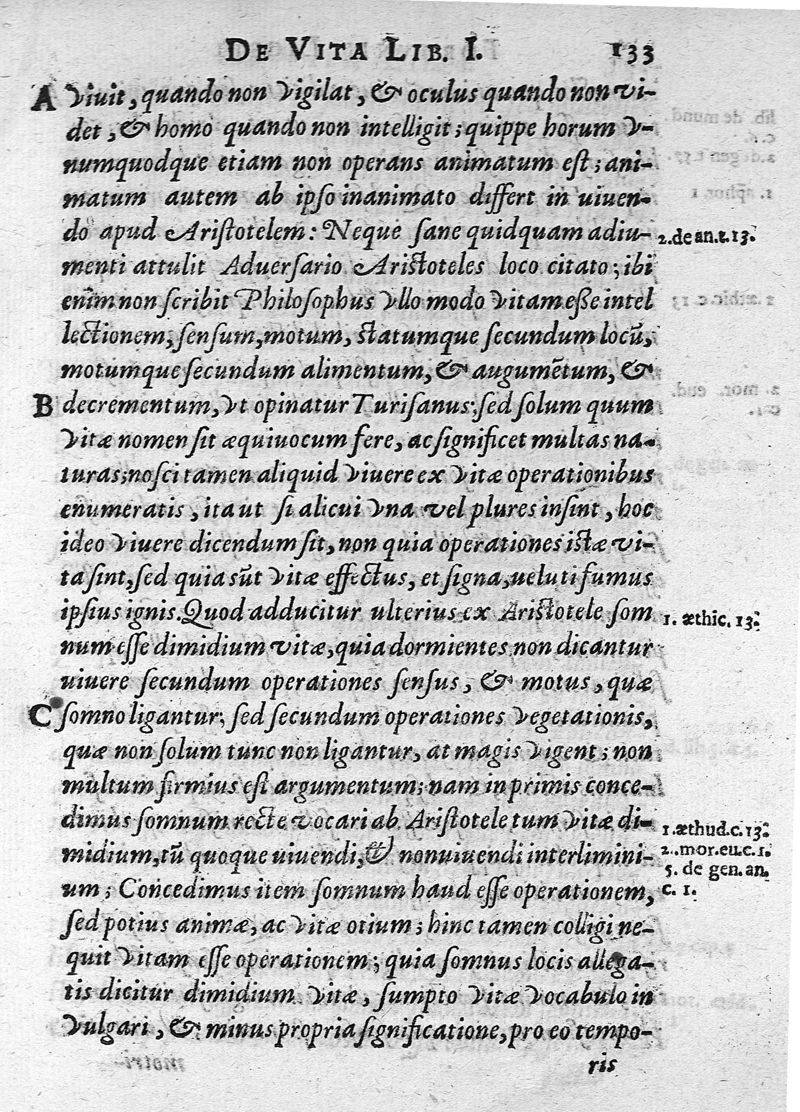 DE VITA LIB. I. 133
A Viuit, quando non vigilat, & oculus quando non vi-
det, & homo quando non intelligit; quippe horum v-
numquodque etiam non operans animatum est; ani-
matum autem ab ipso inanimato differt in uiuen-
do apud Aristotelem: Neque sane quidquam adiu- 2. de an. t. 13.
menti attulit Aduersario Aristoteles loco citato; ibi
enim non scribit Philosophus vllo modo vitam esse intel
lectionem, sensum, motum, statumque secundum locū,
motumque secundum alimentum, & augumētum, &
B decrementum, vt opinatur Turisanus: sed solum quum
vitæ nomen sit æquiuocum fere, ac significet multas na-
turas; nosci tamen aliquid viuere ex vitæ operationibus
enumeratis, ita ut si alicui vna vel plures insint, hoc
ideo viuere dicendum sit, non quia operationes istæ vi-
ta sint, sed quia sūt vitæ effectus, et signa, ueluti fumus
ipsius ignis. Quod adducitur ulterius ex Aristotele som 1. æthic. 13.
num esse dimidium vitæ, quia dormientes non dicantur
uiuere secundum operationes sensus, & motus, quæ
C somno ligantur; sed secundum operationes vegetationis,
quæ non solum tunc non ligantur, at magis vigent; non
multum firmius est argumentum; nam in primis conce-
dimus somnum recte vocari ab Aristotele tum vitæ di- 1. æthud. c. 13.
midium, tū quoque uiuendi, & non uiuendi interlimini- 2. mor. eu. c. 1.
5. de gen. an.
um; Concedimus item somnum haud esse operationem, c. 1.
sed potius animæ, ac vitæ otium; hinc tamen colligi ne-
quit vitam esse operationem; quia somnus locis allega-
tis dicitur dimidium vitæ, sumpto vitæ vocabulo in
vulgari, & minus propria significatione, pro eo tempo-
ris